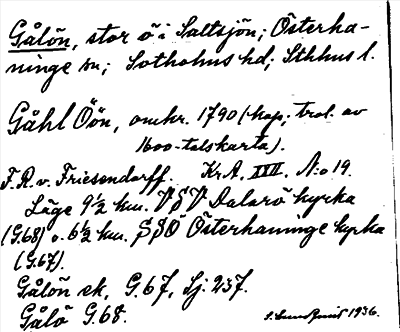 Gålön, stor ö i Saltsjön; Österha-
ninge sn; Sotholms hd; Sthlms l.
Gåhl Öön, omkr. 1790 (kop; trol. av
1600-talskarta).
F.R. v. Friesendorff. Kr.A. XVII. N:o 19.
Läge 9½ km. VSV Dalarö kyrka
(G.68) o. 6½ km. SSO Österhaninge kyrka
(G.67).
Gålön ek. G.67, Sj. 237.
Gålö G.68.
1936.